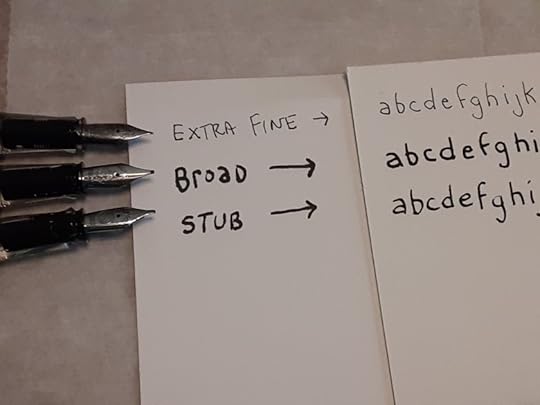 EXTRA FINE → abcdefghijk
Broad → abcdefghi
STUB → abcdefghij